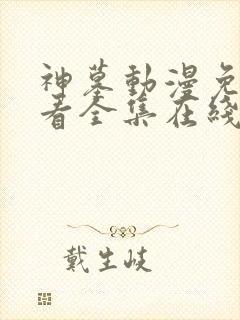 神墓動漫免
看全集在綫
戴生岐